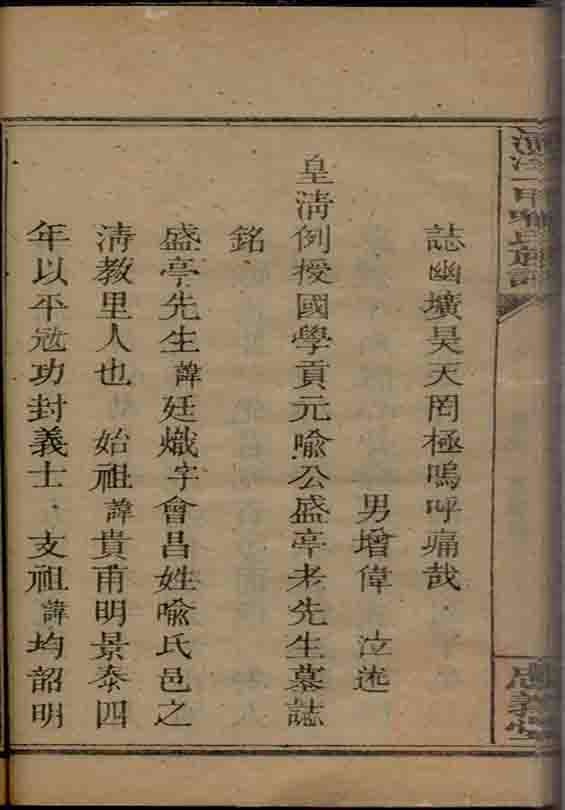 誌幽壙昊天罔極嗚呼痛哉
男增偉 泣述
皇淸例授國學貢元喩公盛亭老先生墓誌
銘
盛亭先生諱廷熾字會昌姓喩氏邑之
淸教里人也 始祖諱貴甫明景泰四
年以平冦功封義士 支祖諱均韶明